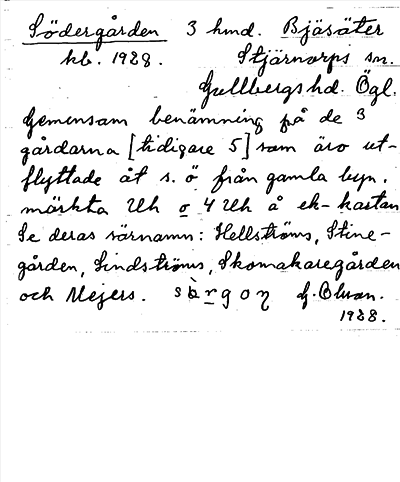 Södergården 3 hmd. Bjäsäter
kb. 1928. Stjärnorps sn.
Gullbergs hd. Ögl.
Gemensam benämning på de 3
gårdarna [tidigare 5] som äro ut-
flyttade åt s. ö från gamla byn.
märkta Uh o 4 Uh å ek-kartan
Se deras särnamn: Hellströms, Stine-
gården, Lindströms, Skomakaregården
och Mejers. G. Olsson.
1928.